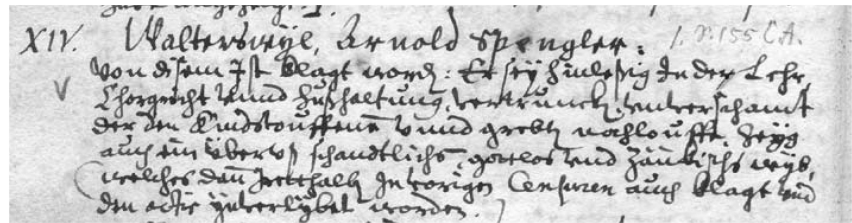 XIV. Walterswyl, Arnold Spengler: 1. P. 155 C.A.
Von disem Ist klagt word: Er sey hinlesig In der Lehr,
Chorgricht unnd Hußhaltung, vertrunckh, unverschamt
der den Kindstouffenen unnd grebt nachlouffe. Heyg
auch ein überuß schandtlichs, gottlos und zänkischs wyb,
welches dan In vorigen Censuren auch klagt und
den actis ynverlybet worden.